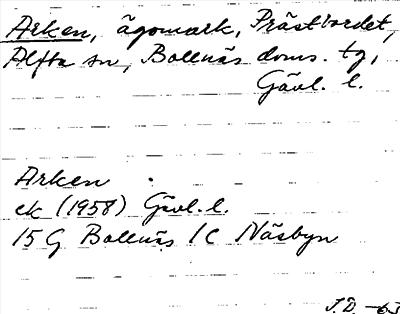 Arken, ägomark, Prästbordet,
Alfta sn, Bollnäs doms. tg,
Gävl. l.
Arken
ek (1958) Gävl. l.
15 G Bollnäs 1 C Näsbyn
J.D. -63